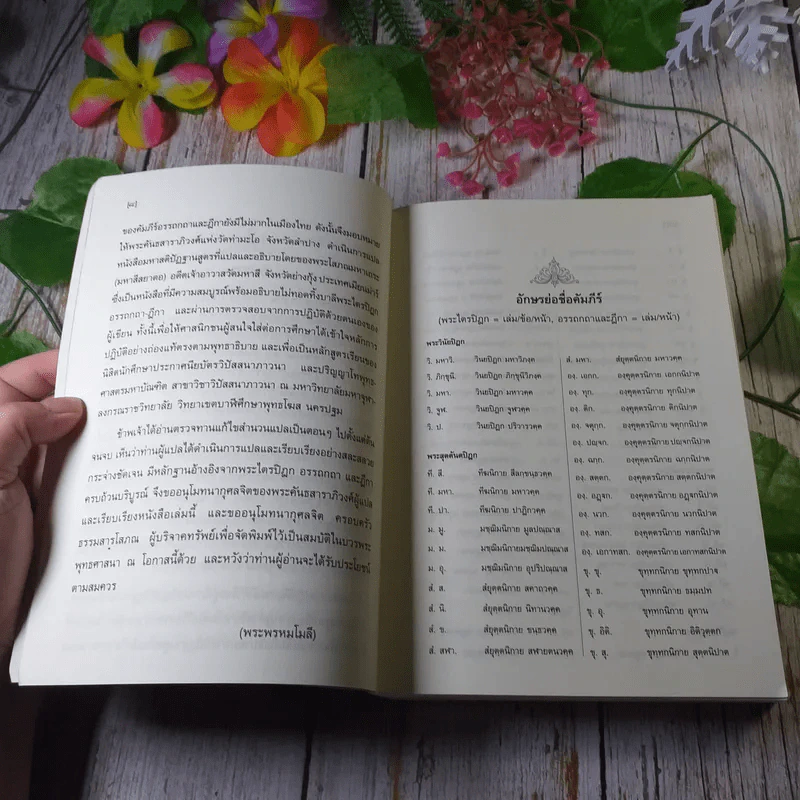 [๘]
ของคัมภีร์อรรถกถาและฎีกายังมีไม่มากในเมืองไทย ดังนั้นจึงมอบหมาย
ให้พระคันธสาราภิวงศ์แห่งวัดท่ามะโอ จังหวัดลำปาง ดำเนินการแปล
หนังสือมหาสติปัฏฐานสูตรที่แปลและอธิบายโดยของพระโสภณมหาเถระ
(มหาสีสยาดอ) อดีตเจ้าอาวาสวัดมหาสี จังหวัดย่างกุ้ง ประเทศเมียนม่าร์
ซึ่งเป็นหนังสือที่มีความสมบูรณ์พร้อมอธิบายไม่ทอดทิ้งบาลีพระไตรปิฎก
อรรถกถา-ฎีกา และผ่านการตรวจสอบจากการปฏิบัติด้วยตนเองของ
ผู้เขียน ทั้งนี้เพื่อให้ศาสนิกชนผู้สนใจใส่ต่อการศึกษาได้เข้าใจหลักการ
ปฏิบัติอย่างถ่องแท้ตรงตามพุทธาธิบาย และเพื่อเป็นหลักสูตรเรียนของ
นิสิตนักศึกษาประกาศนียบัตรวิปัสสนาภาวนา และปริญญาโทพุทธ-
ศาสตรมหาบัณฑิต สาขาวิชาวิปัสสนาภาวนา ณ มหาวิทยาลัยมหาจุฬา-
ลงกรณราชวิทยาลัย วิทยาเขตบาฬีศึกษาพุทธโฆส นครปฐม
ข้าพเจ้าได้อ่านตรวจทานแก้ไขสำนวนแปลเป็นตอนๆ ไปตั้งแต่ต้น
จนจบ เห็นว่าท่านผู้แปลได้ดำเนินการแปลและเรียบเรียงอย่างสละสลวย
กระจ่างชัดเจน มีหลักฐานอ้างอิงจากพระไตรปิฎก อรรถกถา และฎีกา
ครบถ้วนบริบูรณ์ จึงขออนุโมทนากุศลจิตของพระคันธสาราภิวงศ์ผู้แปล
และเรียบเรียงหนังสือเล่มนี้ และขออนุโมทนากุศลจิต ครอบครัว
ธรรมสารฺโสภณ ผู้บริจาคทรัพย์เพื่อจัดพิมพ์ไว้เป็นสมบัติในบวรพระ
พุทธศาสนา ณ โอกาสนี้ด้วย และหวังว่าท่านผู้อ่านจะได้รับประโยชน์
ตามสมควร
(พระพรหมโมลี)
อักษรย่อชื่อคัมภีร์
(พระไตรปิฎก = เล่ม/ข้อ/หน้า, อรรถกถาและฎีกา = เล่ม/หน้า)
พระวินัยปิฎก
วิ. มหาวิ. วินยปิฎก มหาวิภงฺค
วิ. ภิกฺขุนี. วินยปิฎก ภิกฺขุนีวิภงฺค
วิ. มหา. วินยปิฎก มหาวคฺค
วิ. จูฬ. วินยปิฎก จูฬวคฺค
วิ. ป. วินยปิฎก ปริวารวคฺค
พระสุตตันตปิฎก
ที. สี. ทีฆนิกาย สีลกฺขนฺธวคฺค
ที. มหา. ทีฆนิกาย มหาวคฺค
ที. ปา. ทีฆนิกาย ปาฏิกวคฺค
ม. มู. มชฺฌิมนิกาย มูลปณฺณาส
ม. ม. มชฺฌิมนิกายมชฺฌิมปณฺณาส
ม. อุ. มชฺฌิมนิกาย อุปริปณฺณาส
สํ. ส. สํยุตฺตนิกาย สคาถวคฺค
สํ. นิ. สํยุตฺตนิกาย นิทานวคฺค
สํ. ข. สํยุตฺตนิกาย ขนฺธวคฺค
สํ. สฬา. สํยุตฺตนิกาย สฬายตนวคฺค
สํ. มหา. สํยุตฺตนิกาย มหาวคฺค
องฺ. เอกก. องฺคุตฺตรนิกาย เอกกนิปาต
องฺ. ทุก. องฺคุตฺตรนิกาย ทุกนิปาต
องฺ. ติก. องฺคุตฺตรนิกาย ติกนิปาต
องฺ. จตุกฺก. องฺคุตฺตรนิกาย จตุกฺกนิปาต
องฺ. ปญฺจก. องฺคุตฺตรนิกาย ปญฺจกนิปาต
องฺ. ฉกฺก. องฺคุตฺตรนิกาย ฉกฺกนิปาต
องฺ. สตฺตก. องฺคุตฺตรนิกาย สตฺตกนิปาต
องฺ. อฏฺฐก. องฺคุตฺตรนิกาย อฏฺฐกนิปาต
องฺ. นวก. องฺคุตฺตรนิกาย นวกนิปาต
องฺ. ทสก. องฺคุตฺตรนิกาย ทสกนิปาต
องฺ. เอกาทสก. องฺคุตฺตรนิกาย เอกาทสกนิปาต
ขุ. ขุ. ขุทฺทกนิกาย ขุทฺทกปาฐ
ขุ. ธ. ขุทฺทกนิกาย ธมฺมปท
ขุ. อุ. ขุทฺทกนิกาย อุทาน
ขุ. อิติ. ขุทฺทกนิกาย อิติวุตฺตก
ขุ. สุ. ขุทฺทกนิกาย สุตฺตนิปาต